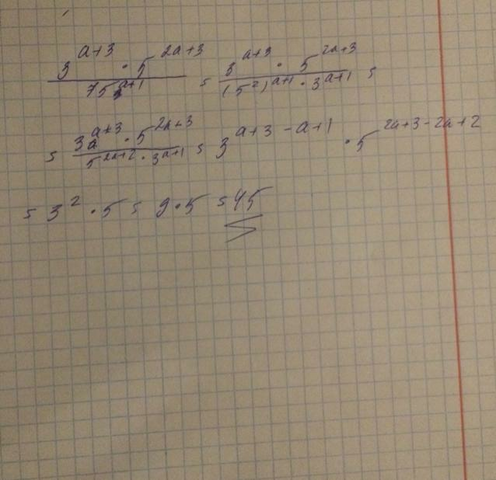 3^(a+3) · 5^(2a+3) / 75^(a+1) = 3^(a+3) · 5^(2a+3) / (5^2)^(a+1) · 3^(a+1) =
= 3^(a+3) · 5^(2a+3) / 5^(2a+2) · 3^(a+1) = 3^(a+3-a+1) · 5^(2a+3-2a+2)
= 3^2 · 5 = 9 · 5 = 45